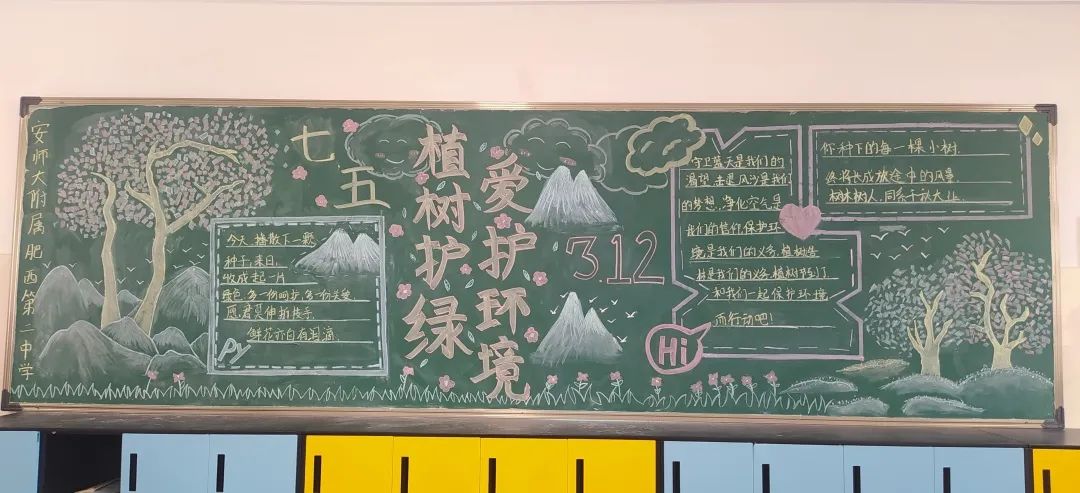 安师大附属肥西第二中学
七五
今天,播散下一颗
种子,来日,
收成起一片
绿色,多一份呵护,多一份关爱
愿君莫伸折枝手
鲜花亦自有泪滴.
Py
植树护绿
爱护环境
3.12
守卫蓝天是我们的
渴望.击退风沙是我们
的梦想,净化空气是
我们的信仰保护环
境是我们的义务,植树造
林是我们的义务,植树节到了
和我们一起保护环境
而行动吧!
Hi
你种下的每一棵小树.
终将长成旅途中的风景
树木树人,同天放大